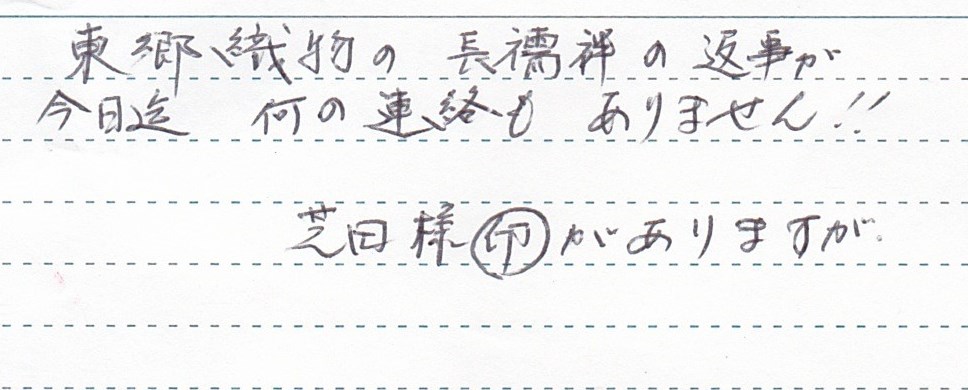 東郷織物の 長襦袢の 返事が
今日迄 何の連絡も ありません!!
芝田様㊞がありますが.